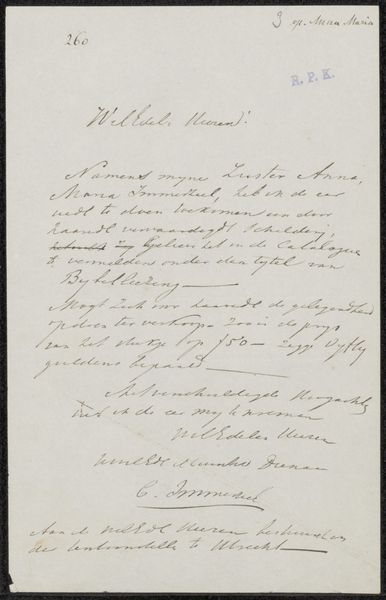 3 op. Anna Maria
260
R. P. K.
WelEdele Heeren!
Namens myne Zuster Anna
Maria Immerzeel, heb ik de eer
UEdl te doen toekomen een door
haar vervaardigd Schildery,
Gelieve het in de Catalogue
te vermelden onder den tytel van
Bybellezing
Mogt zich voor haar de gelegenheid
opdoen te verkoopen zoo is de prys
van het stukje op f50 — zegge Vyftig
guldens bepaald
Met verschuldigde Hoogachting
heb ik de eer my te noemen
WelEdele Heeren
UwelEdl Dienaar
C. Immerzeel
Aan de WelEdl Heeren
der te Utrecht